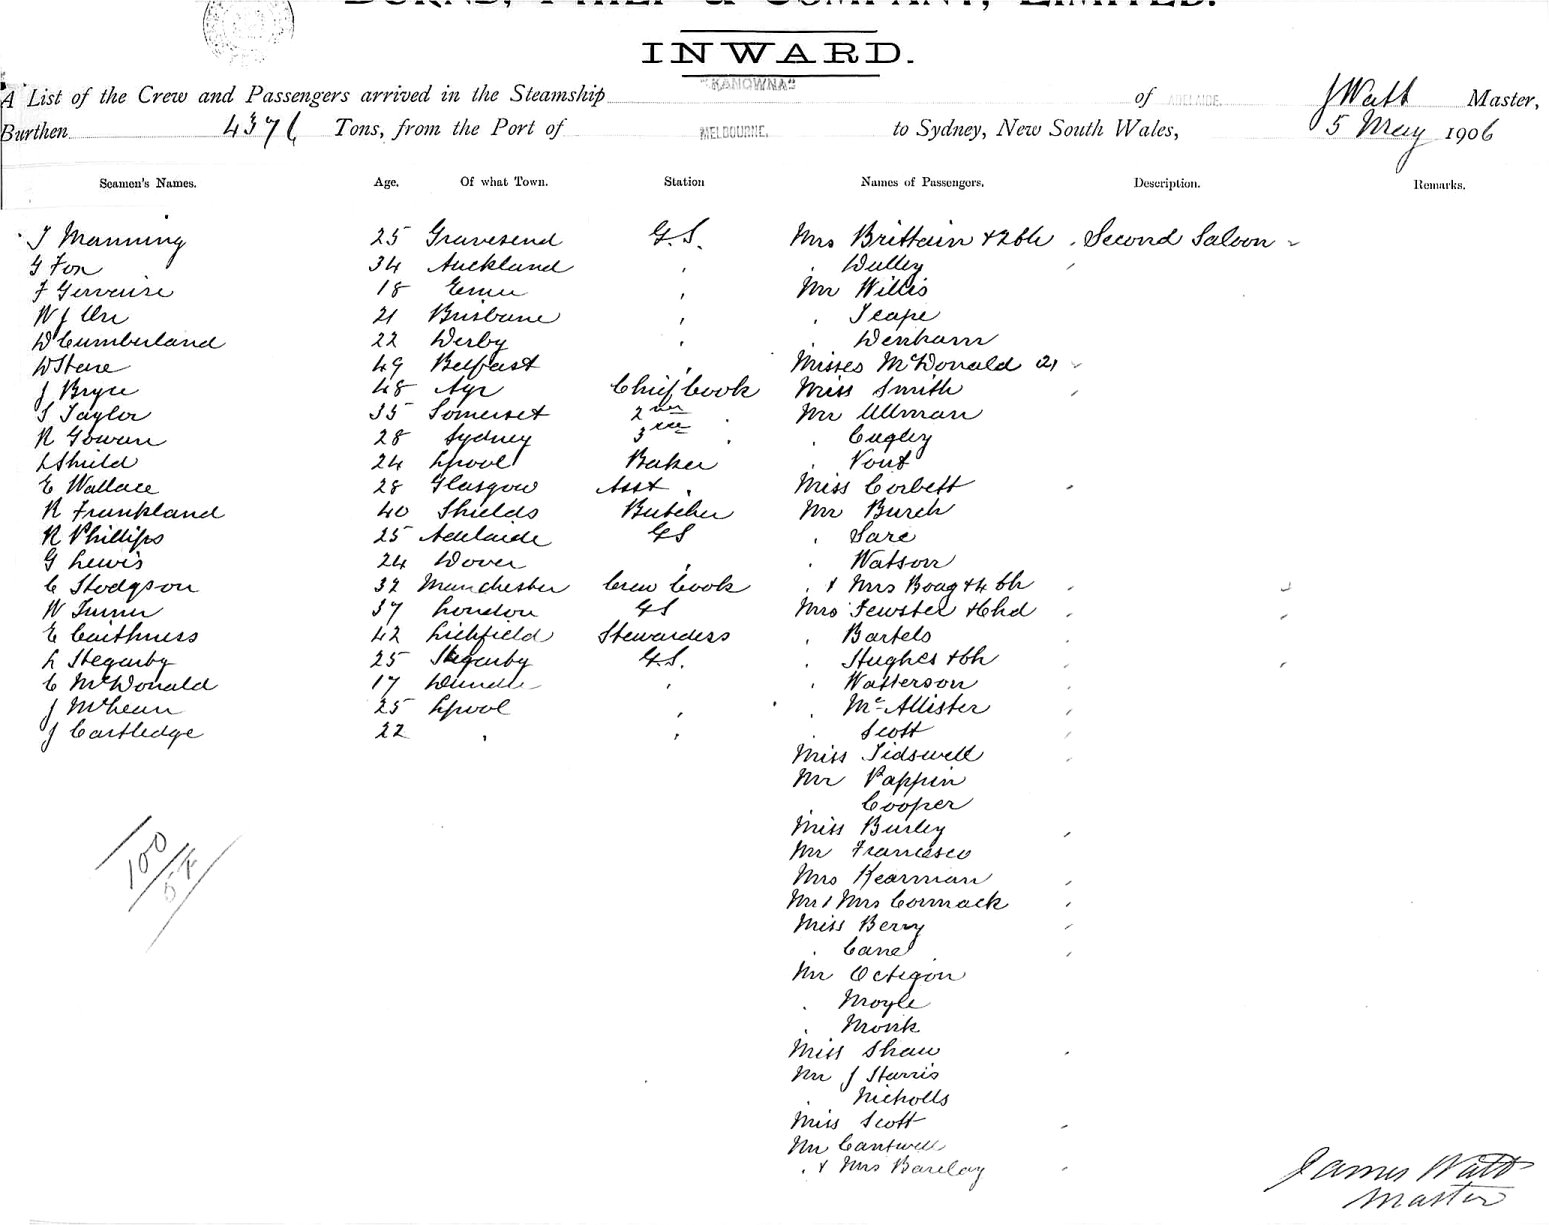 BURNS, PHILP & COMPANY, LIMITED.
INWARD.
A List of the Crew and Passengers arrived in the Steamship "KANOWNA" of ADELAIDE. J Watt Master,
Burthen 4376 Tons, from the Port of MELBOURNE, to Sydney, New South Wales, 5 May 1906
Seamen's Names. Age. Of what Town. Station Names of Passengers. Description. Remarks.
J Manning 25 Gravesend G.S. Mrs Brittain + 2 ch . Second Saloon
G Fox 34 Auckland " " Dulley
F Gervaise 18 " Mr Willis
W J Orr 21 Brisbane " " Teape
D Cumberland 22 Derby " Denham
W Stare 49 Belfast " Misses McDonald 2
J Bryce 48 Ayr Chief Cook Miss Smith
S Taylor 35 Somerset 2nd Mr Ullman
R Gowan 28 Sydney 3rd " " Cugley
L Shield 24 Lpool Baker " Vout
E Wallace 28 Glasgow Asst " Miss Corbett
R Frankland 40 Shields Butcher Mr Burch
R Phillips 25 Adelaide GS " Sare
G Lewis 24 Dover " " Watson
C Hodgson 32 Manchester Crew Cook " & Mrs Boag + 4 ch
W Turner 37 London GS Mrs Fewster + Chd
E Caithness 42 Lichfield Stewardess " Bartels
L Hegarty 25 Hegarty G.S. " Hughes + ch
C McDonald 17 Dundee " " Watterson
J McLean 25 Lpool " " McAllister
J Cartledge 22 " " " Scott
Miss Tidswell
Mr Pappin
" Cooper
Miss Burley
Mr Francesco
Mrs Kearman
Mr & Mrs Cormack
Miss Berry
" Cane
Mr Octigon
" Moyle
" Monk
Miss Shaw
Mr J Harris
" Nicholls
Miss Scott
Mr Cantwell
" & Mrs Barclay
100
57
James Watt
Master